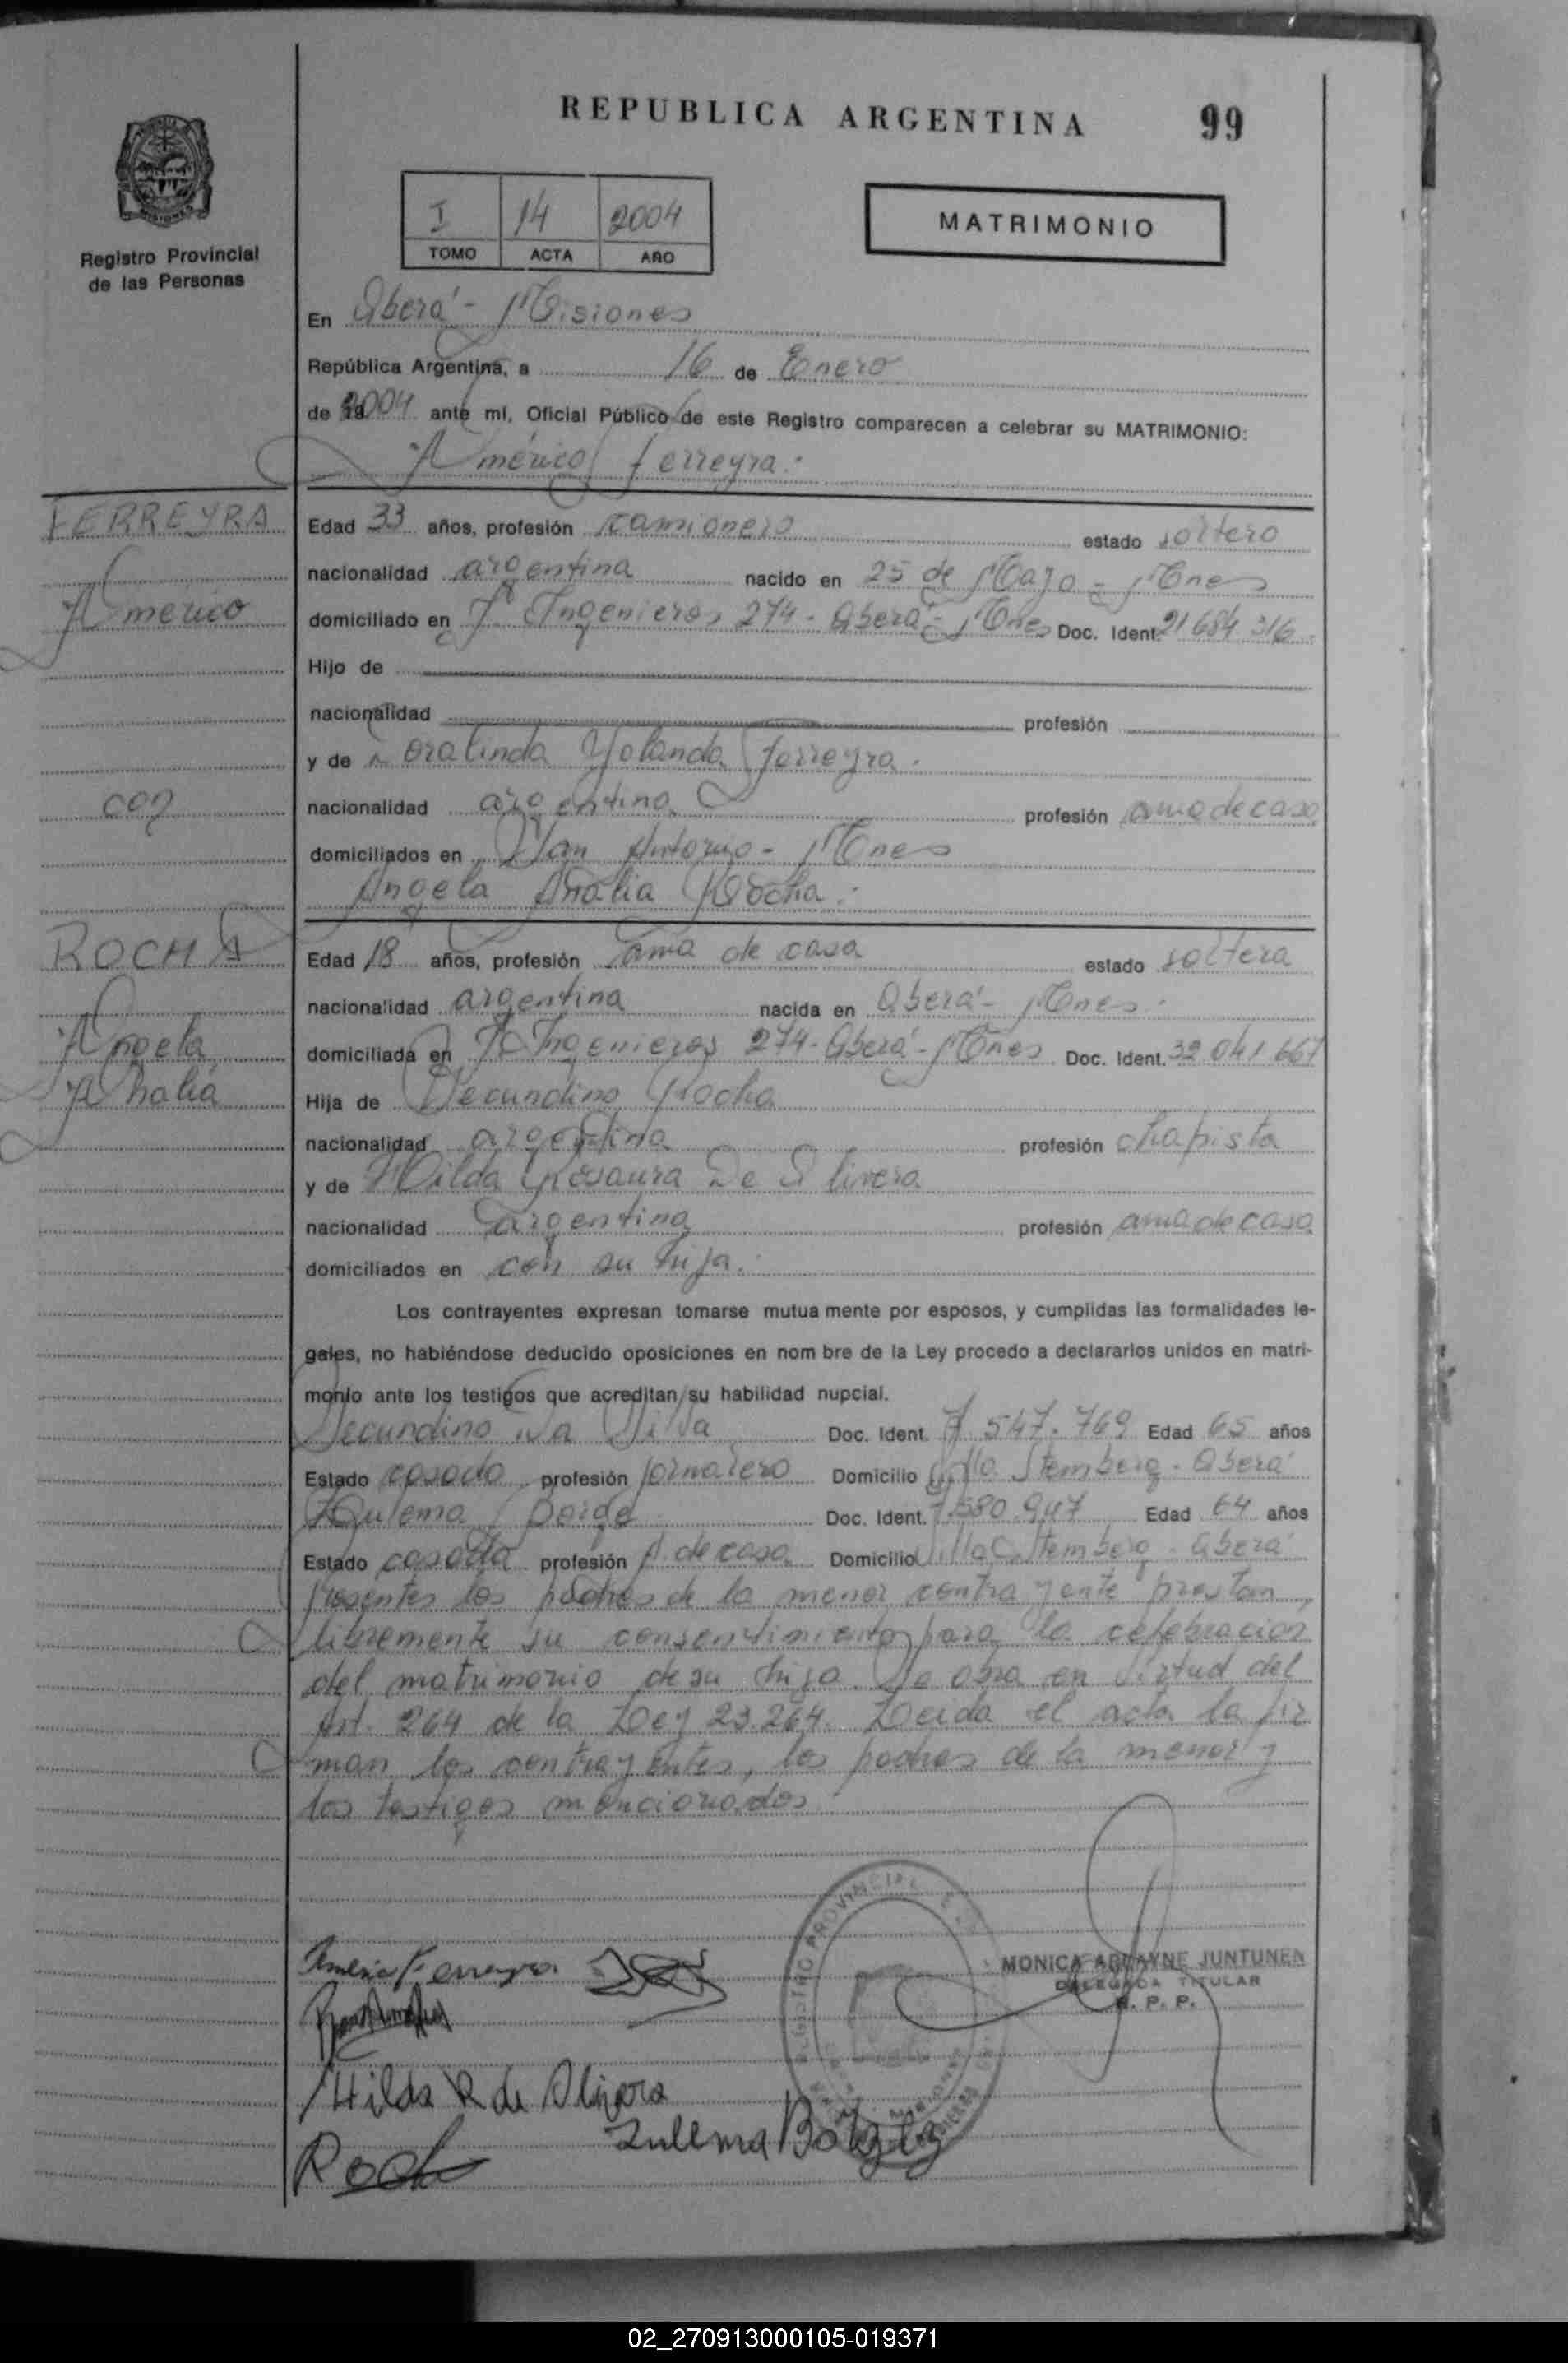 REPUBLICA ARGENTINA 99
I 14 2004
TOMO ACTA AÑO
MATRIMONIO
Registro Provincial
de las Personas
En Oberá - Misiones
República Argentina, a 16 de Enero
de 2004 ante mí, Oficial Público de este Registro comparecen a celebrar su MATRIMONIO:
Américo Ferreyra.-
FERREYRA
Américo
con
ROCHA
Angela
Analia
Edad 33 años, profesión camionero estado soltero
nacionalidad argentina nacido en 25 de Mayo - Mnes
domiciliado en J. Ingenieros 274 - Oberá - Mnes Doc. Ident. 21 684 316
Hijo de
nacionalidad profesión
y de Yolanda Ferreyra.
nacionalidad argentina profesión ama de casa
domiciliados en San Antonio - Mnes
Angela Analia Rocha.-
Edad 18 años, profesión ama de casa estado soltera
nacionalidad argentina nacida en Oberá - Mnes.
domiciliada en J. Ingenieros 274 - Oberá - Mnes Doc. Ident. 32 041 667
Hija de Secundino Rocha
nacionalidad argentina profesión chapista
y de Hilda Rosaura De Olivera
nacionalidad argentina profesión ama de casa
domiciliados en con su hija.
Los contrayentes expresan tomarse mutua mente por esposos, y cumplidas las formalidades le-
gales, no habiéndose deducido oposiciones en nom bre de la Ley procedo a declararlos unidos en matri-
monio ante los testigos que acreditan su habilidad nupcial.
Secundino Da Silva Doc. Ident. 7 547.769 Edad 65 años
Estado casado profesión jornalero Domicilio Villa Stemberg - Oberá
Zulema Doc. Ident. 7.580.947 Edad 64 años
Estado casada profesión A. de casa Domicilio Villa Stemberg - Oberá
Presentes los padres de la menor contrayente prestan
libremente su consentimiento para la celebración
del matrimonio de su hija. Se obra en virtud del
Art. 264 de la Ley 23.264. Leída el acta la fir
man los contrayentes, los padres de la menor y
los testigos mencionados
Americo Ferreyra
MONICA JUNTUNEN
DELEGADA TITULAR
R. P. P.
REGISTRO PROVINCIAL
Hilda R de Olivera
Zulema
Rocha
02_270913000105-019371